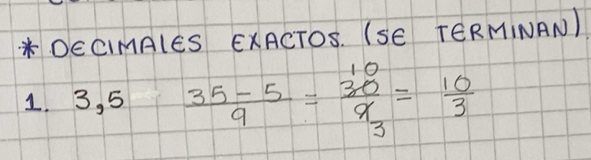 * DECIMALES EXACTOS. (SE TERMINAN)
1. 3,5 35-5/9 = 10 30/9 3 = 10/3